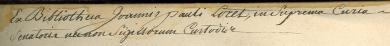 Ex Bibliotheca Joannis pauli Loret, in Suprema Curia
Senatoris necnon Sigillorum Custodis